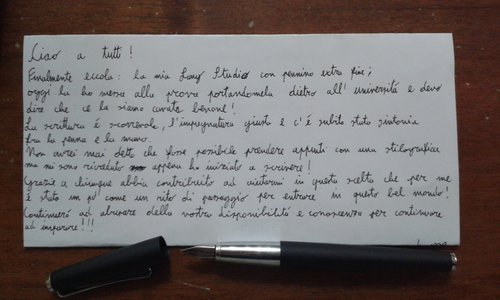 Ciao a tutti!
Finalmente eccola: la mia Lamy Studio con pennino extra fine;
oggi la ho messa alla prova portandomela dietro all' università e devo
dire che ce la siamo cavata benone!
La scrittura é scorrevole, l'impugnatura giusta e c'é subito stata sintonia
fra la penna e la mano.
Non avrei mai detto che fosse possibile prendere appunti con una stilografica
ma mi sono ricreduto appena ho iniziato a scrivere!
Grazie a chiunque abbia contribuito ad aiutarmi in questa scelta che per me
é stata un po' come un rito di passaggio per entrare in questo bel mondo!
Continueró ad abusare della vostra disponibilitá e conoscenza per continuare
ad imparare!!!